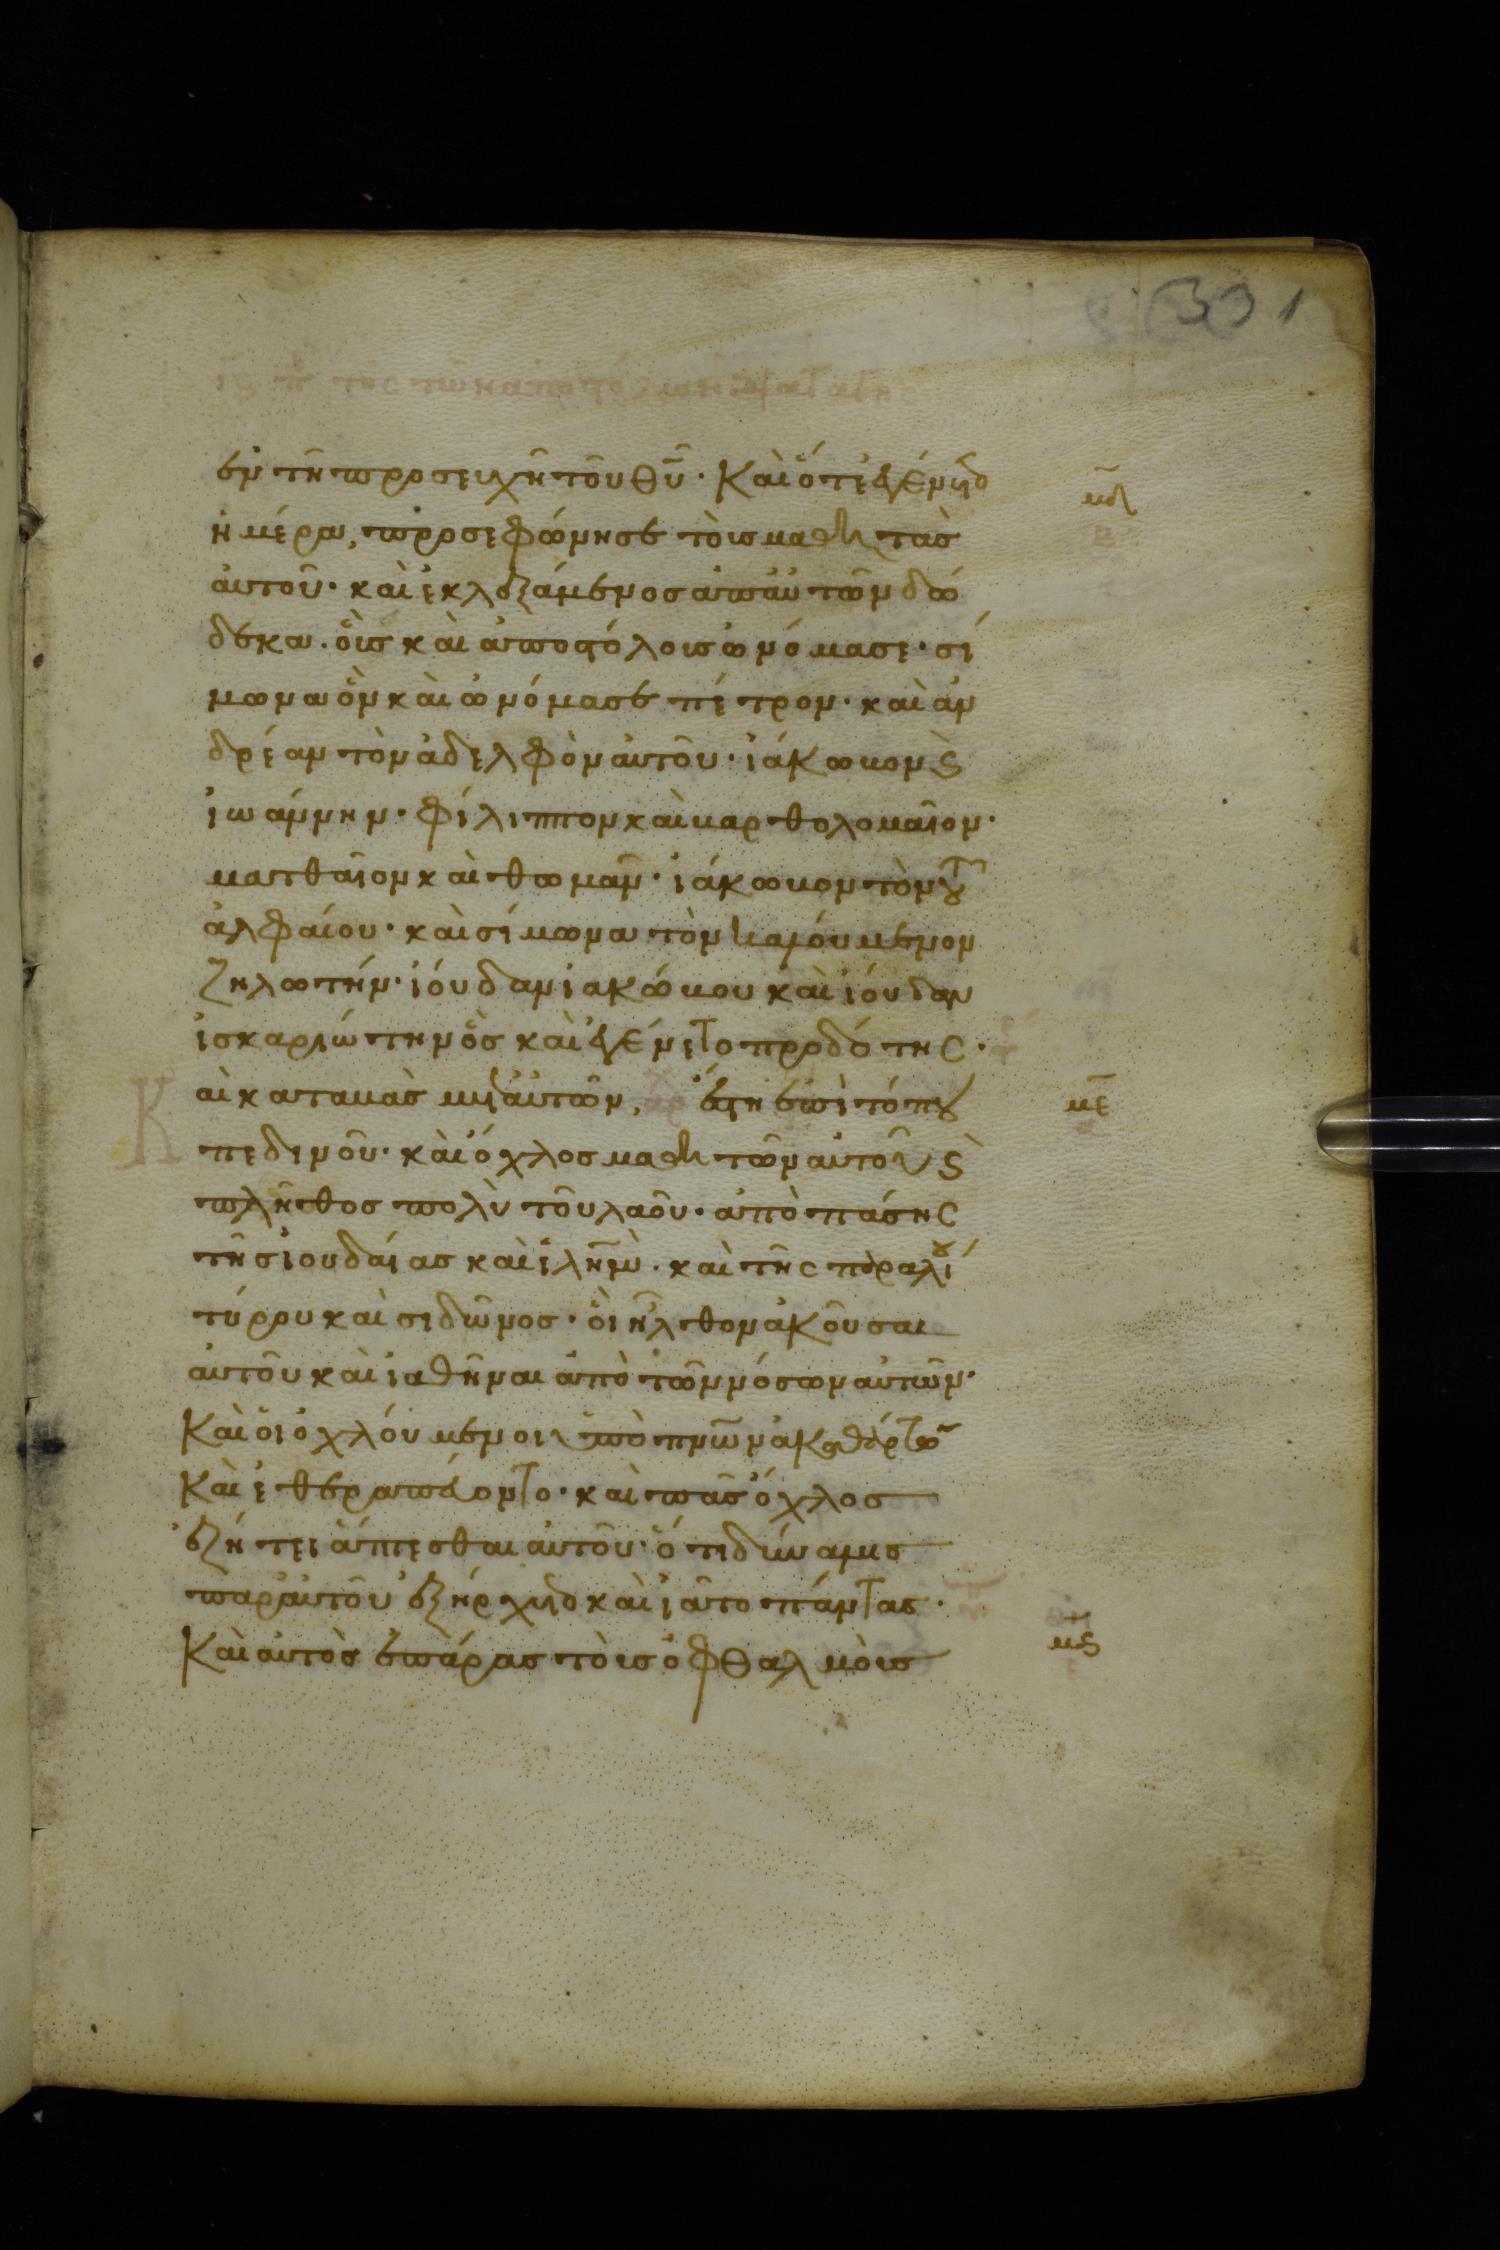 331
ἐν τῆ προσευχῆ τοῦ θῦ. Καὶ ὅτε ἐγένετο
ἡμέρα, προσεφώνησε τοὺς μαθητὰς
αὐτοῦ· καὶ ἐκλεξάμενος ἀπ' αὐτῶν δώ
δεκα. οὓς καὶ ἀποστόλους ὠνόμασε· σί
μωνα ὃν καὶ ὠνόμασε πέτρον· καὶ ἀν
δρέαν τὸν ἀδελφὸν αὐτοῦ· ἰάκωβον ϛ
ἰωάννην· φίλιππον καὶ βαρθολομαῖον·
ματθαῖον καὶ θωμᾶν· ἰάκωβον τὸν τοῦ
ἀλφαίου· καὶ σίμωνα τὸν καλούμενον
ζηλωτήν· ἰούδαν ἰακώβου καὶ ἰούδαν
ἰσκαριώτην ὃς καὶ ἐγένετο προδότης·
Καὶ καταβὰς μετ' αὐτῶν, ἔστη ἐπὶ τόπου
πεδινοῦ· καὶ ὄχλος μαθητῶν αὐτοῦ ϛ
πλῆθος πολὺ τοῦ λαοῦ· ἀπὸ πάσης
τῆς ἰουδαίας καὶ ἱλῆμ· καὶ τῆς παραλίου
τύρου καὶ σιδῶνος· οἳ ἦλθον ἀκοῦσαι
αὐτοῦ καὶ ἰαθῆναι ἀπὸ τῶν νόσων αὐτῶν·
Καὶ οἱ ὀχλούμενοι ὑπὸ πνῶν ἀκαθάρτων
Καὶ ἐθεραπεύοντο· καὶ πᾶς ὁ ὄχλος
ἐζήτει ἅπτεσθαι αὐτοῦ· ὅτι δύναμις
παρ' αὐτοῦ ἐξήρχετο καὶ ἰᾶτο πάντας·
Καὶ αὐτὸς ἐπάρας τοὺς ὀφθαλμοὺς
μδ
με
μϛ